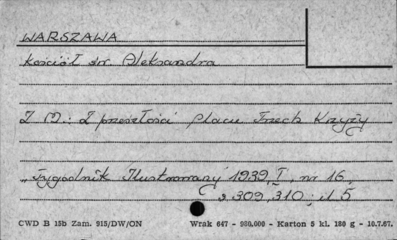 WARSZAWA
Kościół św. Aleksandra
Z M.: Z przeszłości Placu Trzech Krzyży
"Tygodnik Ilustrowany" 1939, I, nr 16,
s. 309, 310; il. 5
CWD B 15b Zam. 915/DW/ON Wrak 647 - 980.000 - Karton 5 kl. 180 g - 10.7.67.